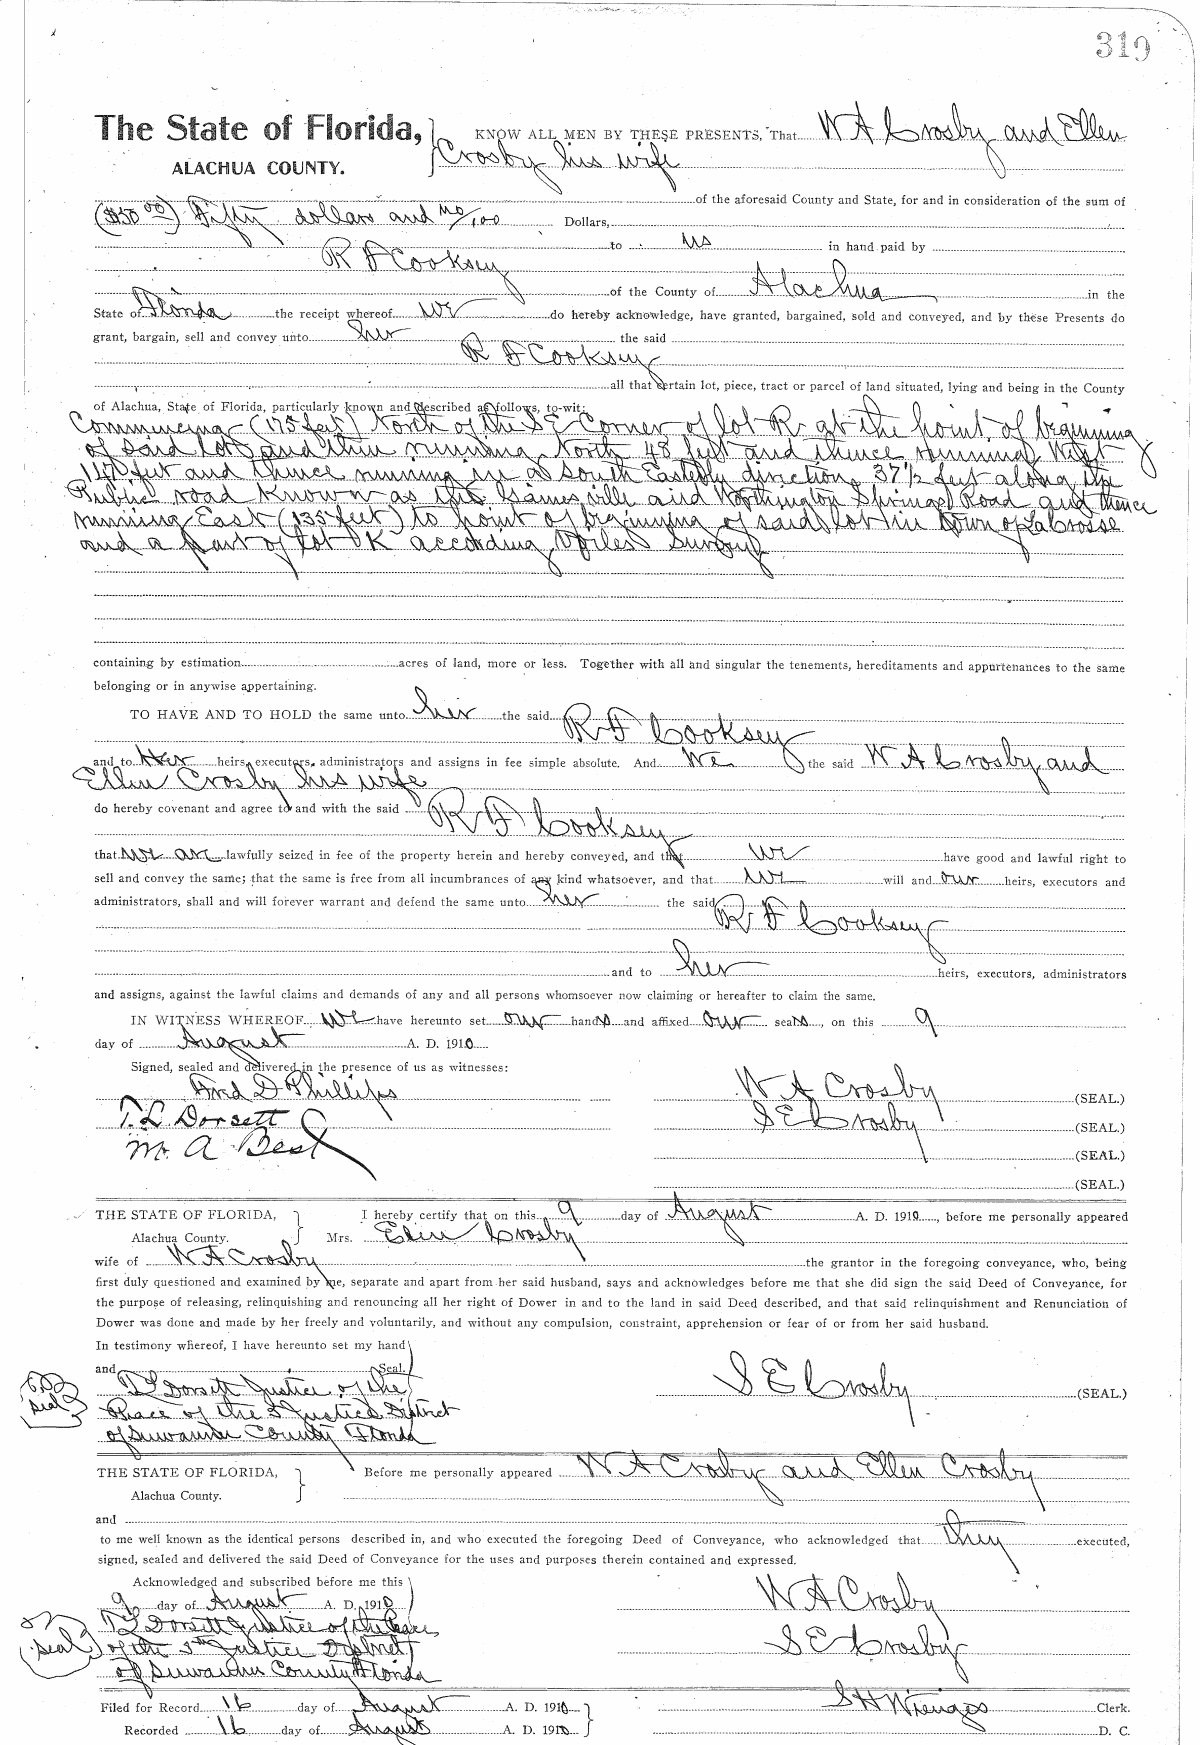 319
The State of Florida, KNOW ALL MEN BY THESE PRESENTS, That W A Crosby and Ellen
ALACHUA COUNTY. Crosby his wife
of the aforesaid County and State, for and in consideration of the sum of
($50 00) Fifty dollars and no/100 Dollars,
to us in hand paid by
R F Cooksey
of the County of Alachua in the
State of Florida the receipt whereof we do hereby acknowledge, have granted, bargained, sold and conveyed, and by these Presents do
grant, bargain, sell and convey unto her the said
R F Cooksey
all that certain lot, piece, tract or parcel of land situated, lying and being in the County
of Alachua, State of Florida, particularly known and described as follows, to-wit:
Commencing (175 feet) North of the SE Corner of lot K at the point of beginning
of said lot and then running North 48 feet and thence running West
feet and thence running in a South Easterly direction 37½ feet along the
Public road known as the Gainesville and Worthington Springs Road and thence
running East (135 feet) to point of beginning of said lot in Town of LaCrosse
and a part of lot K according Survey
containing by estimation acres of land, more or less. Together with all and singular the tenements, hereditaments and appurtenances to the same
belonging or in anywise appertaining.
TO HAVE AND TO HOLD the same unto her the said R F Cooksey
and to Her heirs, executors, administrators and assigns in fee simple absolute. And We the said W A Crosby and
Ellen Crosby his wife
do hereby covenant and agree to and with the said R F Cooksey
that we are lawfully seized in fee of the property herein and hereby conveyed, and that we have good and lawful right to
sell and convey the same; that the same is free from all incumbrances of any kind whatsoever, and that we will and our heirs, executors and
administrators, shall and will forever warrant and defend the same unto her the said R F Cooksey
and to her heirs, executors, administrators
and assigns, against the lawful claims and demands of any and all persons whomsoever now claiming or hereafter to claim the same.
IN WITNESS WHEREOF We have hereunto set our hands and affixed our seals, on this 9
day of August A. D. 1910
Signed, sealed and delivered in the presence of us as witnesses:
Fred D Phillips W A Crosby (SEAL.)
T. L. Dorsett S E Crosby (SEAL.)
M. A Best (SEAL.)
(SEAL.)
THE STATE OF FLORIDA, I hereby certify that on this 9 day of August A. D. 1910, before me personally appeared
Alachua County. Mrs. Ellen Crosby
wife of W A Crosby the grantor in the foregoing conveyance, who, being
first duly questioned and examined by me, separate and apart from her said husband, says and acknowledges before me that she did sign the said Deed of Conveyance, for
the purpose of releasing, relinquishing and renouncing all her right of Dower in and to the land in said Deed described, and that said relinquishment and Renunciation of
Dower was done and made by her freely and voluntarily, and without any compulsion, constraint, apprehension or fear of or from her said husband.
In testimony whereof, I have hereunto set my hand
and Seal.
T L Dorsett Justice of the S E Crosby (SEAL.)
seal Peace of the 5 Justice District
of Suwannee County Florida
THE STATE OF FLORIDA, Before me personally appeared W A Crosby and Ellen Crosby
Alachua County.
and
to me well known as the identical persons described in, and who executed the foregoing Deed of Conveyance, who acknowledged that they executed,
signed, sealed and delivered the said Deed of Conveyance for the uses and purposes therein contained and expressed.
Acknowledged and subscribed before me this
9 day of August A. D. 1910 W A Crosby
T L Dorsett Justice of the Peace
seal of the 5th Justice District S E Crosby
of Suwannee County Florida
Filed for Record 16 day of August A. D. 1910 S H Wienges Clerk.
Recorded 16 day of August A. D. 1910 D. C.